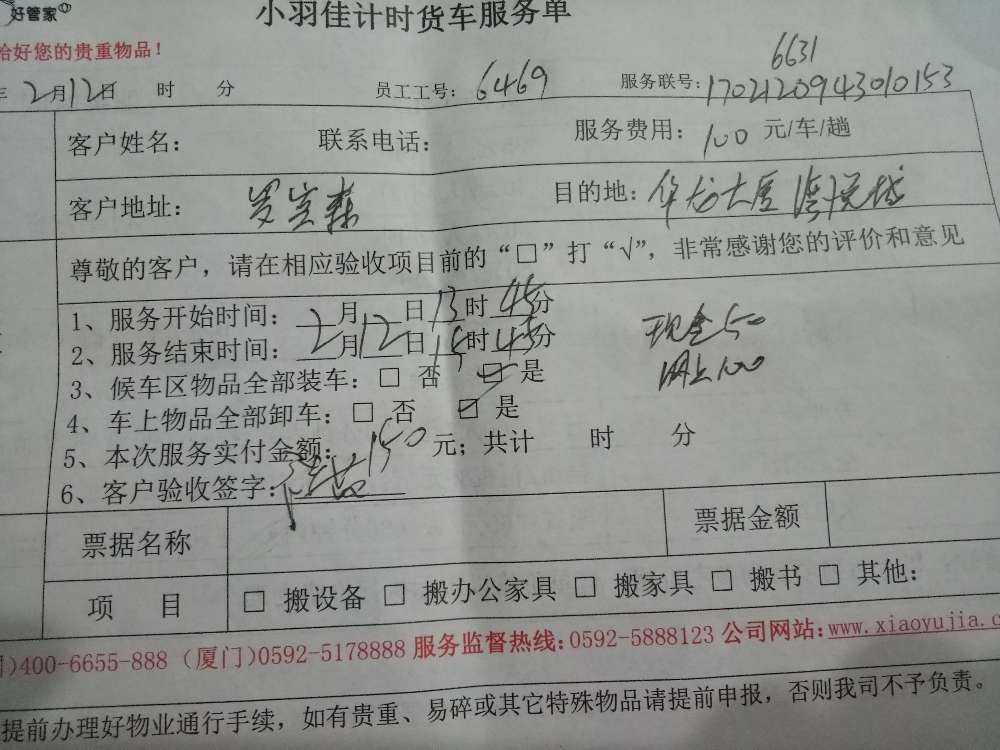 好管家
小羽佳计时货车服务单
您的贵重物品！
年 2月12日 时 分 员工工号：6469 服务联号：1702120943010153
6631
客户姓名： 联系电话： 服务费用：100 元/车/趟
客户地址： 目的地：华龙大厦
尊敬的客户，请在相应验收项目前的“□”打“√”，非常感谢您的评价和意见
1、服务开始时间：2月12日13时45分
2、服务结束时间：2月12日15时45分
现金50
网上100
3、候车区物品全部装车：□ 否 ☑ 是
4、车上物品全部卸车：□ 否 ☑ 是
5、本次服务实付金额：150元；共计 时 分
6、客户验收签字：
票据名称 票据金额
项 目 □ 搬设备 □ 搬办公家具 □ 搬家具 □ 搬书 □ 其他：
)400-6655-888（厦门）0592-5178888 服务监督热线：0592-5888123 公司网站：www.xiaoyujia.c
提前办理好物业通行手续，如有贵重、易碎或其它特殊物品请提前申报，否则我司不予负责。